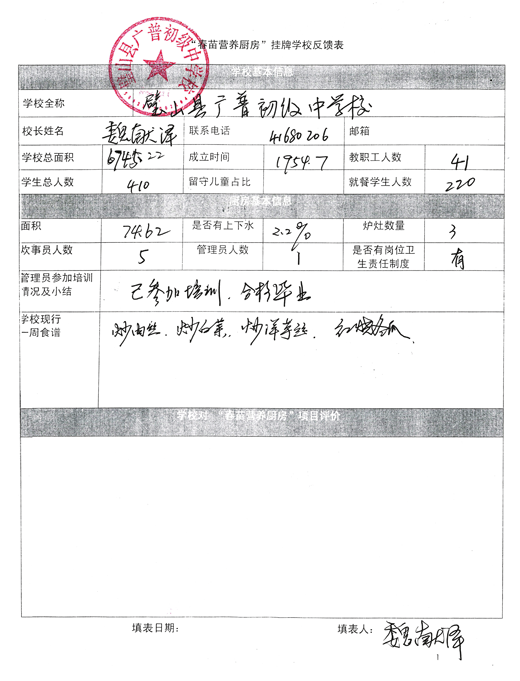 "春苗营养厨房"挂牌学校反馈表
璧山县广普初级中学校
学校基本信息
学校全称 璧山县广普初级中学校
校长姓名 魏献泽 联系电话 41680206 邮箱
学校总面积 成立时间 1954.7 教职工人数 41
学生总人数 410 留守儿童占比 就餐学生人数 220
厨房基本信息
面积 74.62 是否有上下水 2.2% 炉灶数量 3
炊事员人数 5 管理员人数 1 是否有岗位卫
生责任制度 有
管理员参加培训
情况及小结 已参加培训、合格毕业
学校现行
一周食谱 炒肉丝、炒白菜、炒洋芋丝、红烧冬瓜
学校对"春苗营养厨房"项目评价
填表日期: 填表人: 魏献泽
1